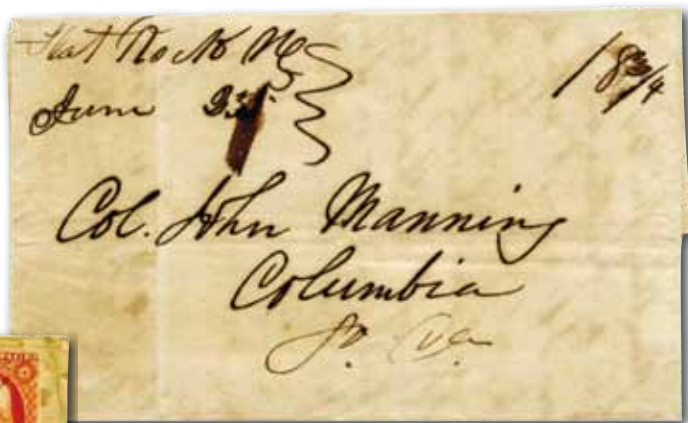 Flat Rock NC
18 3/4
June
Col. John Manning
Columbia
So. Ca.